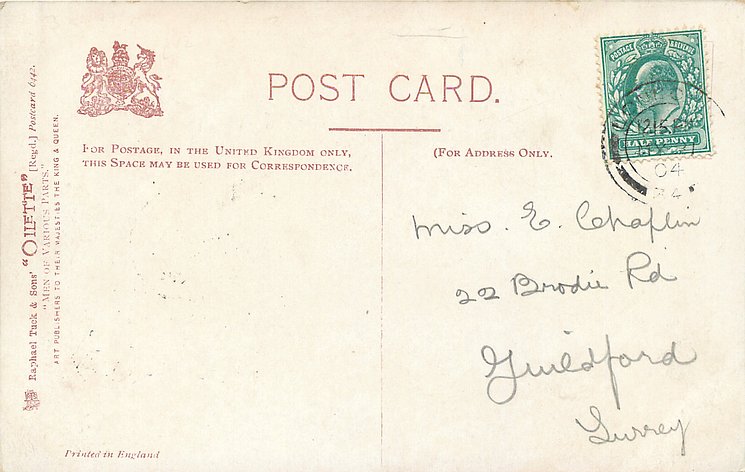 POST CARD.
FOR POSTAGE, IN THE UNITED KINGDOM ONLY,
THIS SPACE MAY BE USED FOR CORRESPONDENCE.
(FOR ADDRESS ONLY.
POSTAGE & REVENUE
HALF PENNY
04
Miss. E. Chaplin
22 Brodie Rd
Guildford
Surrey
Raphael Tuck & Sons' "OILETTE" [Regd.] Postcard 6442.
"MEN OF VARIOUS PARTS."
ART PUBLISHERS TO THEIR MAJESTIES THE KING & QUEEN.
Printed in England